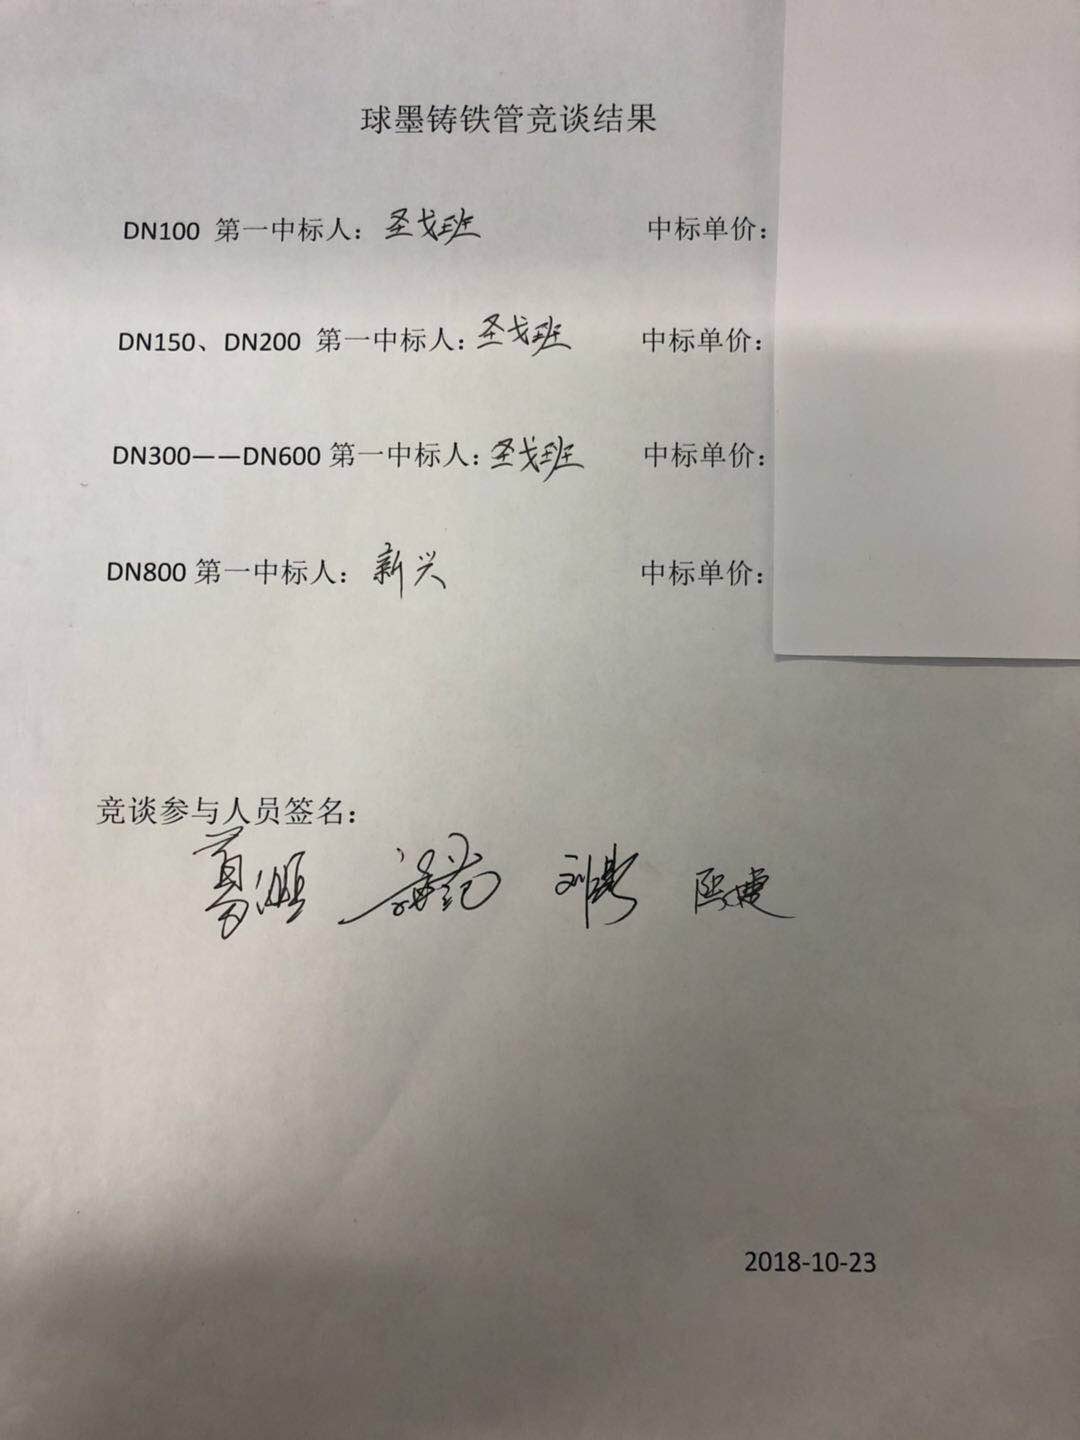 球墨铸铁管竞谈结果
DN100 第一中标人：圣戈班 中标单价：
DN150、DN200 第一中标人：圣戈班 中标单价：
DN300——DN600 第一中标人：圣戈班 中标单价：
DN800 第一中标人：新兴 中标单价：
竞谈参与人员签名：
2018-10-23